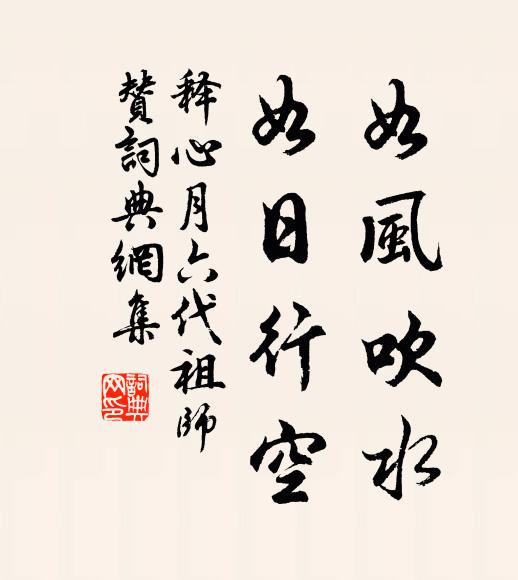 如風吹水
如日行空
释心月六代祖師
贊詞典網集
詞典网印